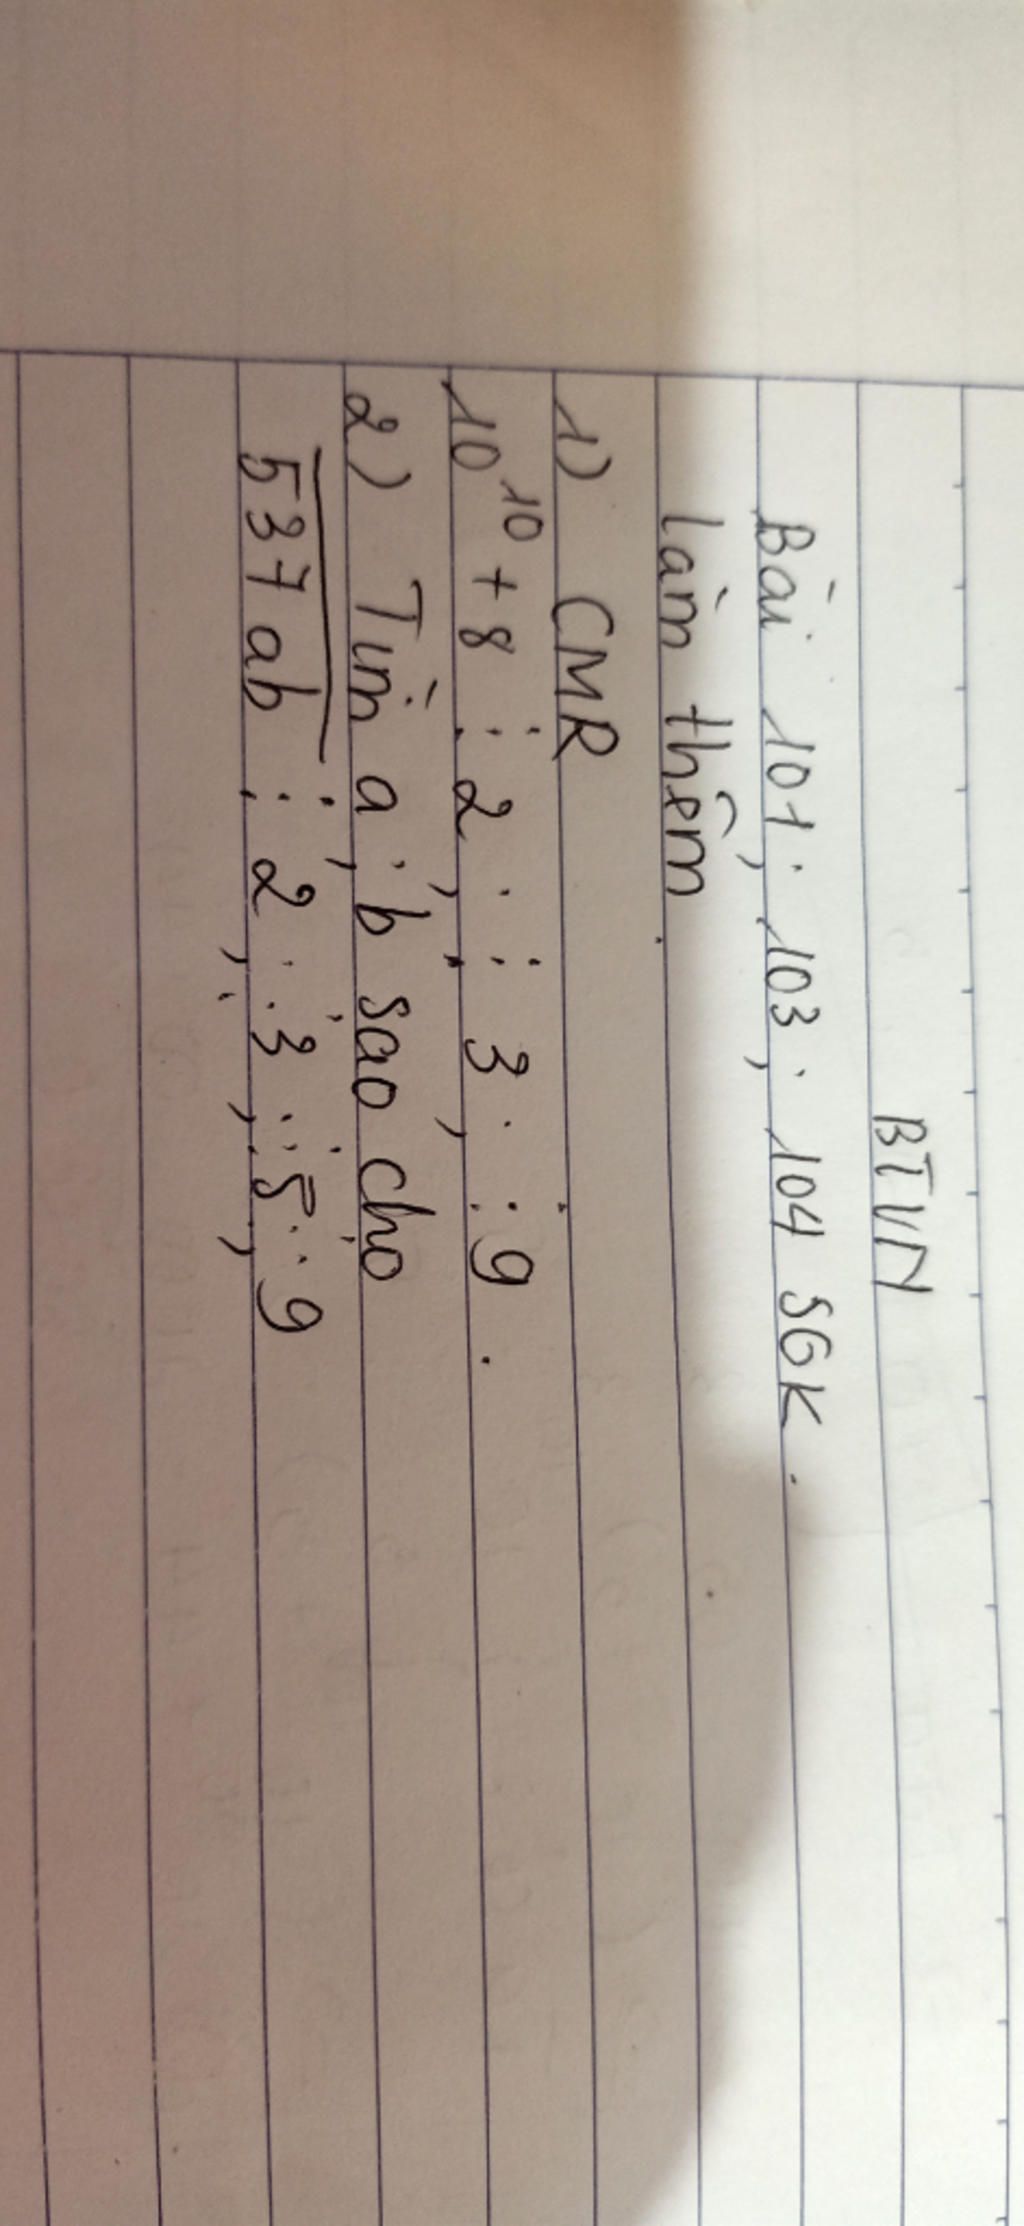 BTVN
Bài 101; 103; 104 SGK.
làm thêm
1) CMR
10¹⁰ + 8 ⋮ 2; ⋮ 3; ⋮ 9.
2) Tìm a; b sao cho
537ab ⋮ 2; ⋮ 3; ⋮ 5; ⋮ 9